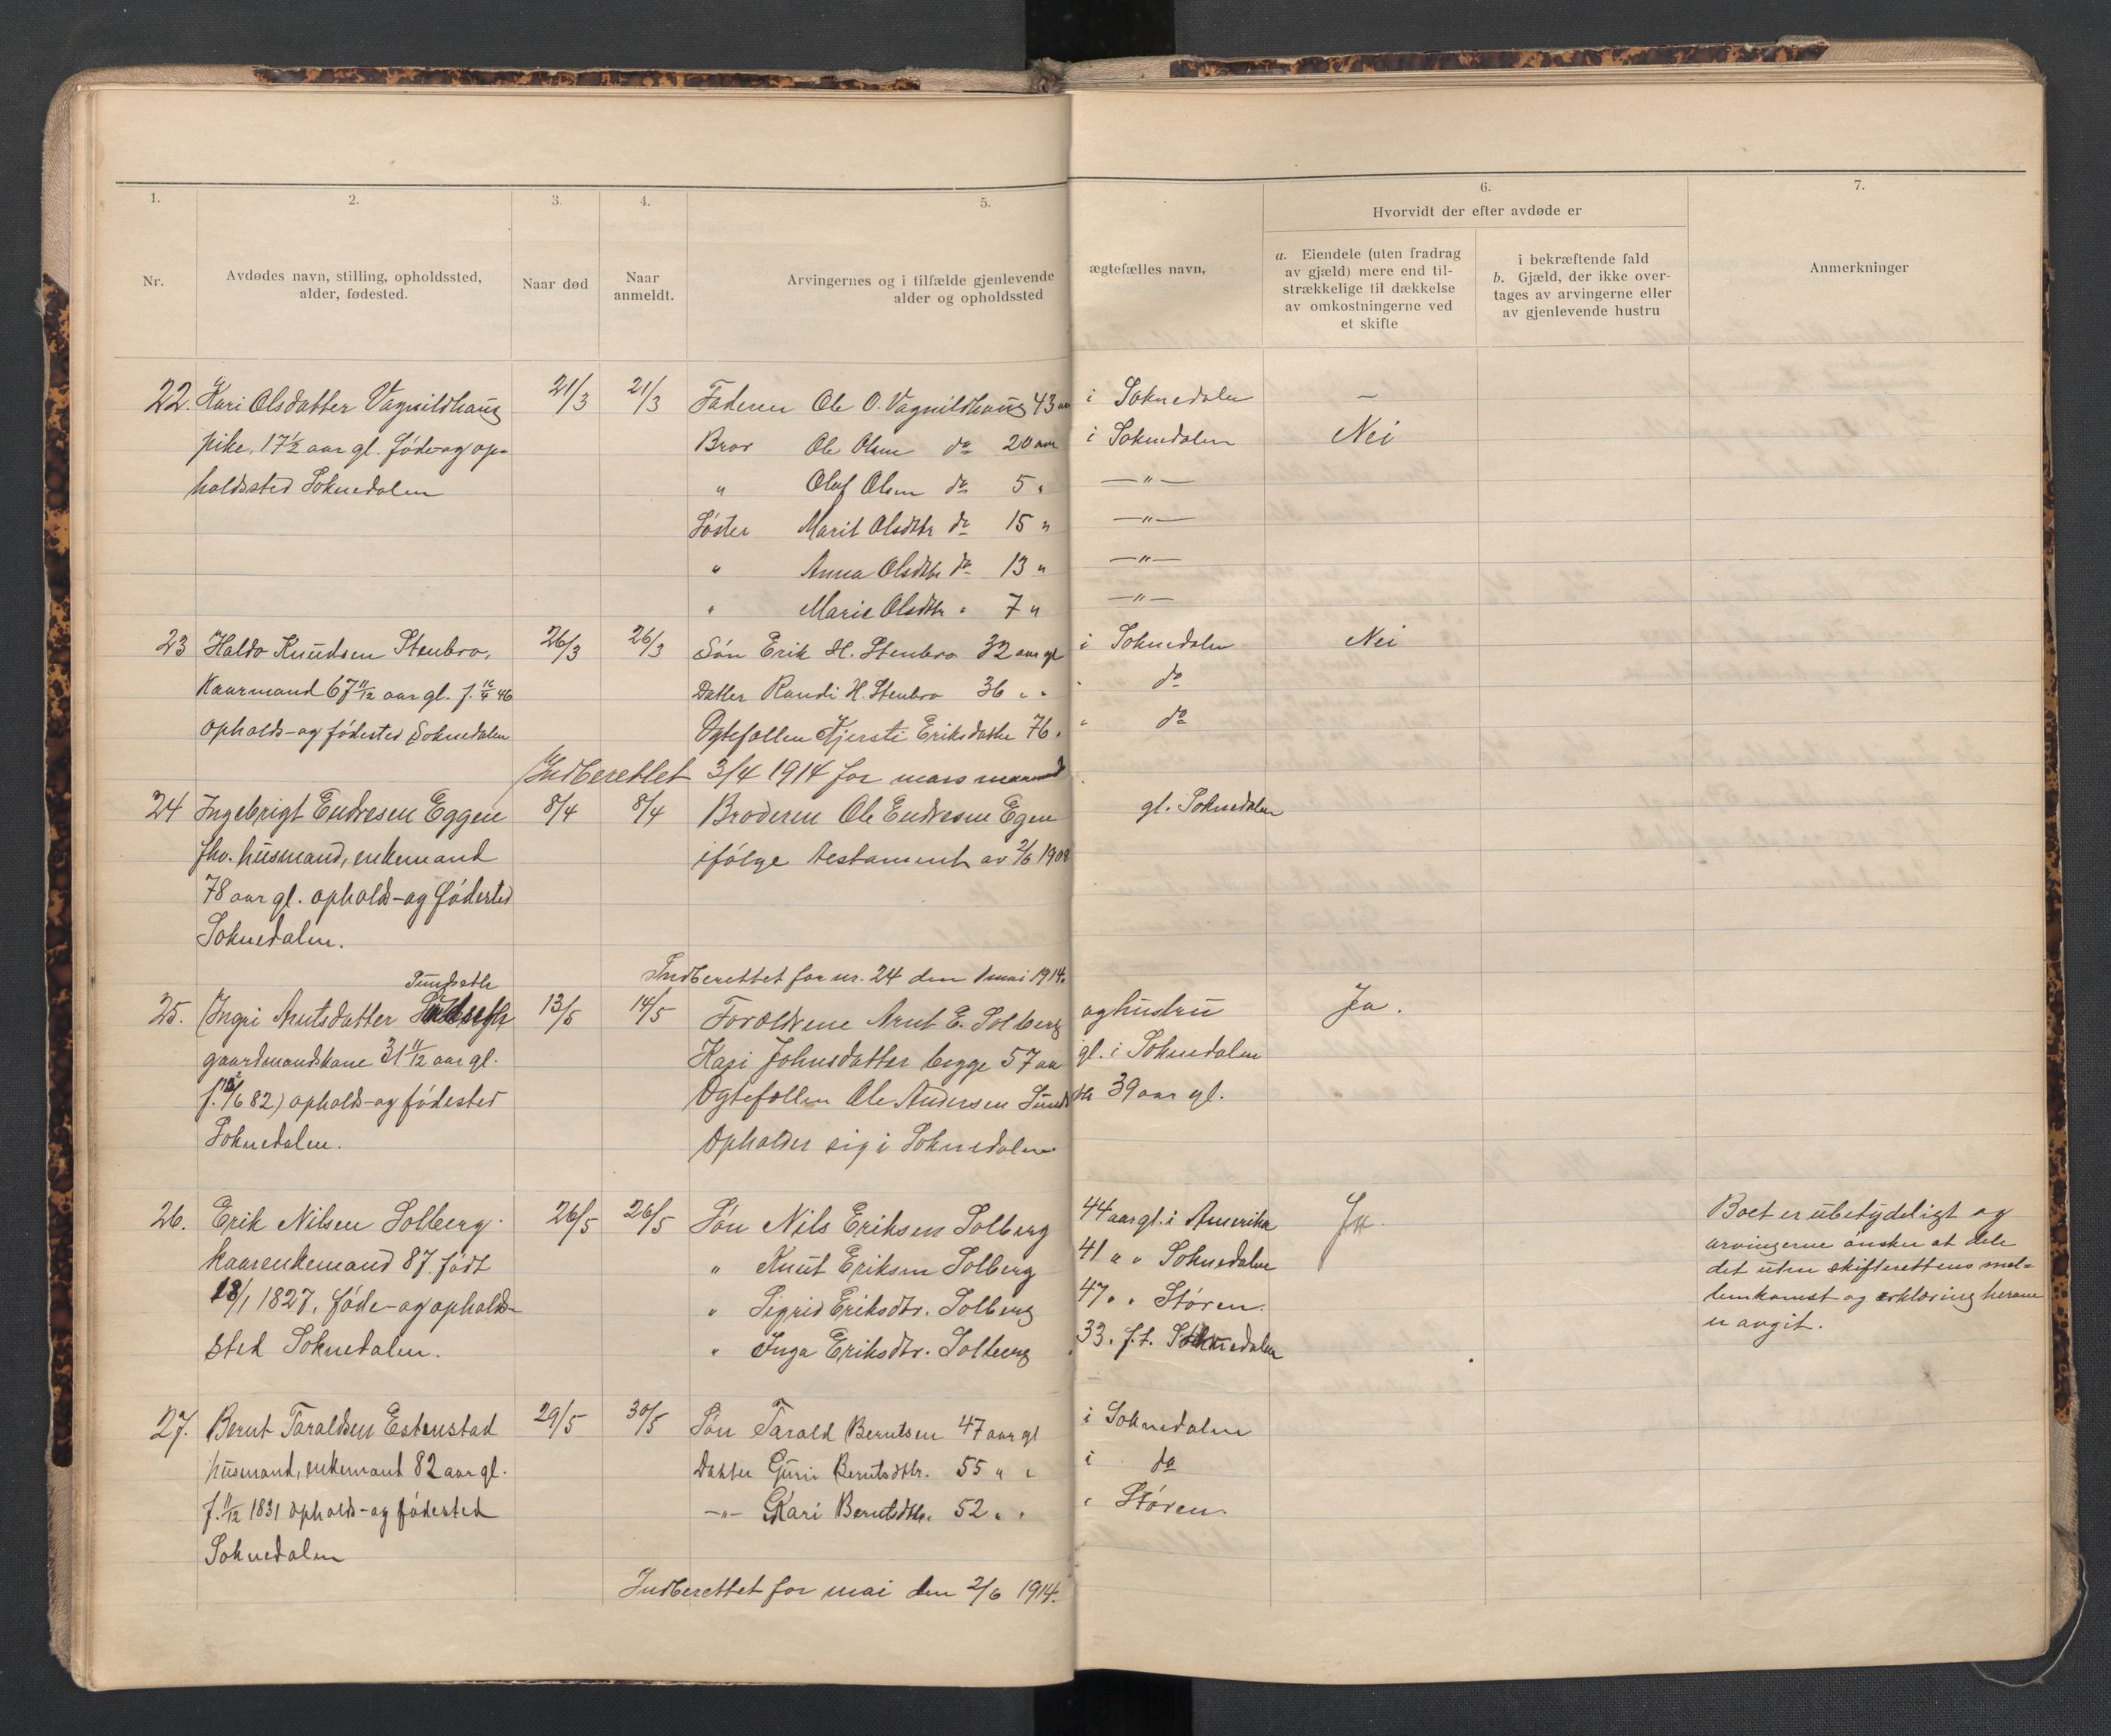 1. 2. 3. 4. 5. 6. 7.
Hvorvidt der efter avdøde er
Nr.
Avdødes navn, stilling, opholdssted,
alder, fødested.
Naar død
Naar
anmeldt.
Arvingernes og i tilfælde gjenlevende ægtefælles navn,
alder og opholdssted
a. Eiendele (uten fradrag
av gjæld) mere end til-
strækkelige til dækkelse
av omkostningerne ved
et skifte
i bekræftende fald
b. Gjæld, der ikke over-
tages av arvingerne eller
av gjenlevende hustru
Anmerkninger
22. Kari Olsdatter Vagnildhaug 21/3 21/3 Faderen Ole O. Vagnildhaug 43 aar i Soknedalen —
pike, 17½ aar gl. føde- og op- Bror Ole Olsen do 20 aar i Soknedalen Nei
holdssted Soknedalen " Olaf Olsen do 5 " —"—
Søster Marit Olsdtr do 15 " —"—
" Anna Olsdtr do 13 " —"—
" Marie Olsdtr " 7 " —"—
23 Haldo Knudsen Stenbro, 26/3 26/3 Søn Erik H. Stenbro 32 aar gl i Soknedalen Nei
Kaarmand 67 11/12 aar gl. f. 16/4 46 Datter Randi H. Stenbro 36 " " " do
ophold- og fødested Soknedalen Ægtefællen Kjersti Eriksdatter 76 " " do
Indberettet 3/4 1914 for mars maaned
24 Ingebrigt Endresen Eggen 8/4 8/4 Broderen Ole Endresen Egen gl. Soknedalen
fhv. husmand, enkemand ifølge testament av 2/6 1908
78 aar gl. opholds- og fødested
Soknedalen.
Indberettet for nr. 24 den 1 mai 1914.
25. Ingri Arntsdatter 13/5 14/5 Forældrene Arnt E. Solberg og hustru Ja.
gaardmandskone 31 11/12 aar gl. Kari Johnsdatter begge 57 aar gl. i Soknedalen
82) opholds- og fødested Ægtefællen Ole Andersen 39 aar gl.
Soknedalen. Opholder sig i Soknedalen
26. Erik Nilsen Solberg. 26/5 26/5 Søn Nils Eriksen Solberg 44 aar gl. i Amerika Ja. Boet er ubetydeligt og
kaarenkemand 87. født " Knut Eriksen Solberg 41 " " Soknedalen arvingerne ønsker at dele
18/1 1827. føde- og opholds- " Sigrid Eriksdtr. Solberg 47 " " Støren. det uten skifterettens mel-
sted Soknedalen. " Inga Eriksdtr. Solberg 33. f.t. Soknedalen lemkomst og erklæring herom
er avgit.
27. Bernt Taraldsen Estenstad 29/5 30/5 Søn Tarald Berntsen 47 aar gl i Soknedalen
husmand, enkemand 82 aar gl. Datter Guri Berntsdtr. 55 " " i do
f. 11/12 1831 opholds- og fødested —"— Kari Berntsdtr. 52 " " " Støren.
Soknedalen
Indberettet for mai den 2/6 1914.